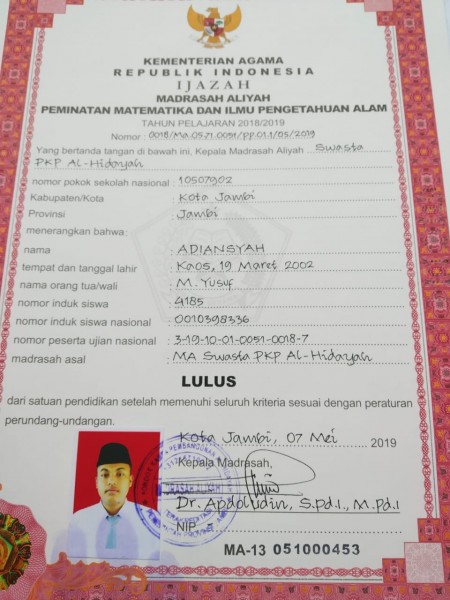 KEMENTERIAN AGAMA
REPUBLIK INDONESIA
IJAZAH
MADRASAH ALIYAH
PEMINATAN MATEMATIKA DAN ILMU PENGETAHUAN ALAM
TAHUN PELAJARAN 2018/2019
Nomor : 0018/Ma.05.71.0051/PP.01.1/05/2019
Yang bertanda tangan di bawah ini, Kepala Madrasah Aliyah Swasta
PKP Al-Hidayah
nomor pokok sekolah nasional : 10507902
Kabupaten/Kota : Kota Jambi
Provinsi : Jambi
menerangkan bahwa:
nama : ADIANSYAH
tempat dan tanggal lahir : Kaos, 19 Maret 2002
nama orang tua/wali : M. Yusuf
nomor induk siswa : 4185
nomor induk siswa nasional : 0010398336
nomor peserta ujian nasional : 3-19-10-01-0051-0018-7
madrasah asal : MA Swasta PKP Al-Hidayah
LULUS
dari satuan pendidikan setelah memenuhi seluruh kriteria sesuai dengan peraturan
perundang-undangan.
Kota Jambi, 07 Mei 2019
Kepala Madrasah,
Dr. Apdoludin, S.pd.I., M.pd.I
NIP. -
MA-13 051000453